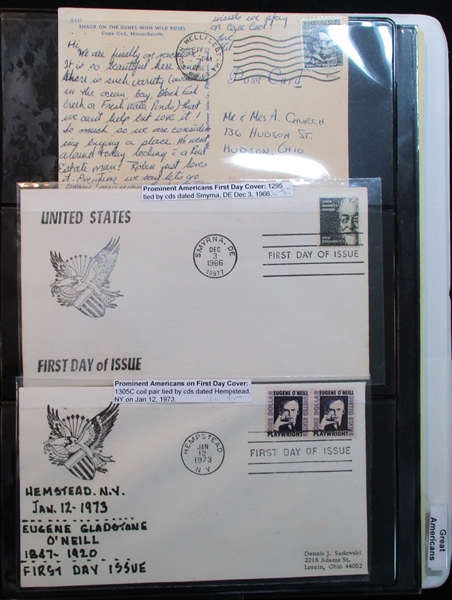 SHACK ON THE DUNES WITH WILD ROSES
Cape Cod, Massachusetts
Hi,
We are finally on
It is so beautiful here and
there is such
in the ocean, bay,
Creek or Fresh Water Ponds) that
we can't help but love it! So
much so we are consider-
ing buying a place. We went
around today looking
Estate man! loves
it.
we
on Cape Cod
WELLFLEET
Post Card
Mr & Mrs A. CHURCH
136 HUDSON ST.
HUDSON, OHIO
Prominent Americans First Day Cover: 1295
tied by cds dated Smyrna, DE Dec 3, 1966.
UNITED STATES
SMYRNA, DE
DEC
3
1966
19977
FIRST DAY OF ISSUE
FIRST DAY of ISSUE
Prominent Americans on First Day Cover:
1305C coil pair tied by cds dated Hempstead,
NY on Jan 12, 1973.
EUGENE O'NEILL EUGENE O'NEILL
PLAYWRIGHT PLAYWRIGHT
HEMPSTEAD
JAN
12
1973
N Y
FIRST DAY OF ISSUE
HEMSTEAD. N.Y.
JAN. 12-1973
EUGENE GLADSTONE
O'NEILL
1847-1920
FIRST DAY ISSUE
Dennis J. Sadowski
2218 Adams St.
Lorain, Ohio 44052
Great
Americans